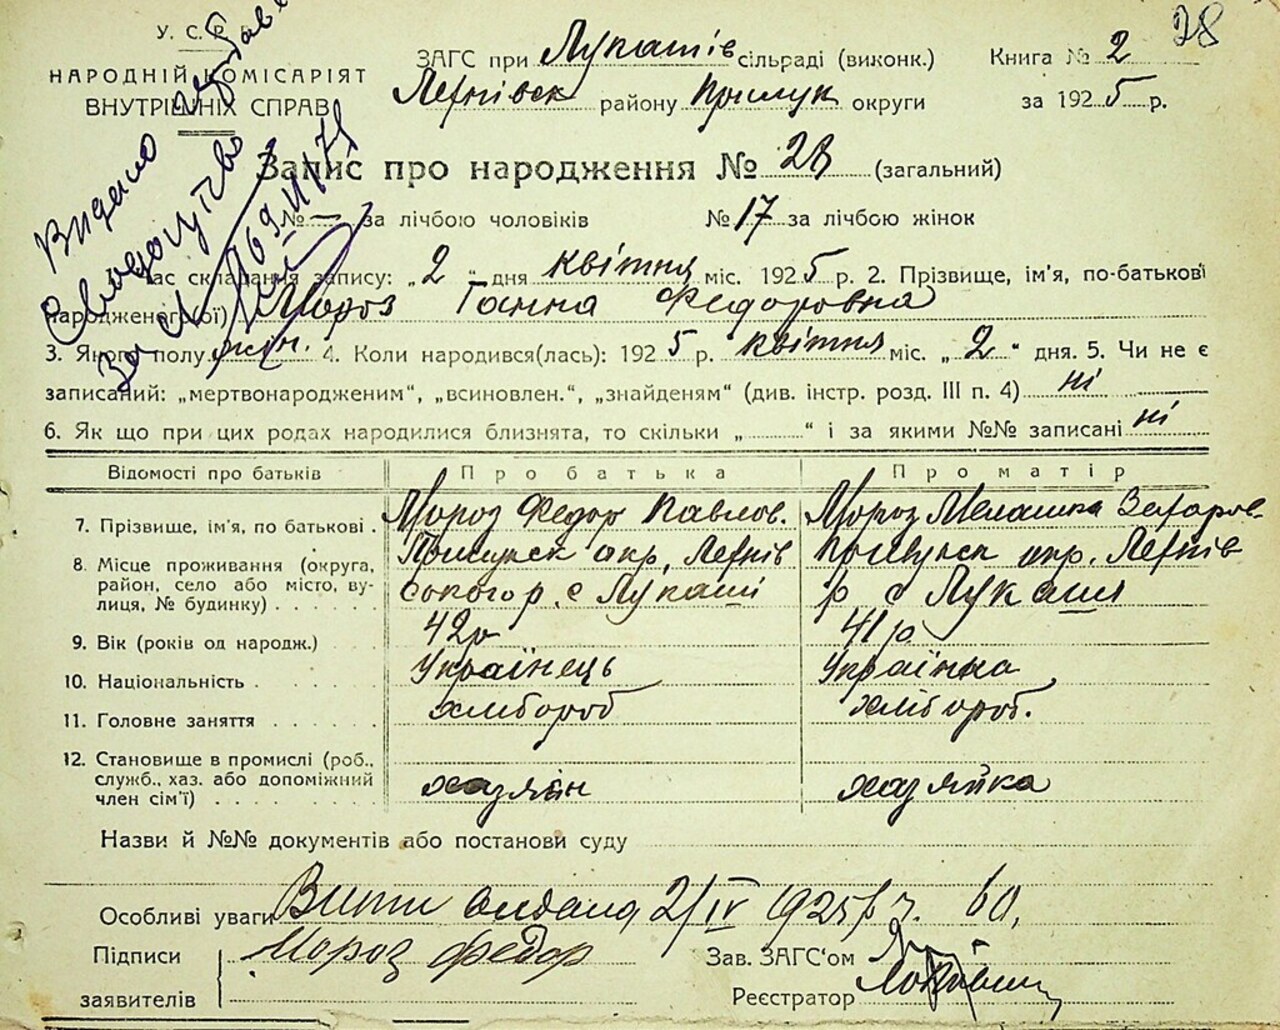 28
У. С. Р. Р.
НАРОДНІЙ КОМІСАРІЯТ
ВНУТРІШНІХ СПРАВ
ЗАГС при Лукашів сільраді (виконк.)
Книга № 2
району Прилук округи
за 1925 р.
Видано
Свидоцтво
За №
Запис про народження № 28 (загальний)
№ — за лічбою чоловіків
№ 17 за лічбою жінок
Час складання запису: „2“ дня квітня міс. 1925 р. 2. Прізвище, ім'я, по-батькові
народженого(ої) Мороз Ганна Федоровна
3. Якого полу жін. 4. Коли народився(лась): 1925 р. квітня міс. „2“ дня. 5. Чи не є
записаний: „мертвонародженим“, „всиновлен.“, „знайденям“ (див. інстр. розд. III п. 4) ні
6. Як що при цих родах народилися близнята, то скільки „..........“ і за якими №№ записані ні
Відомості про батьків
Про батька
Про матір
7. Прізвище, ім'я, по батькові .
Мороз Федор Павлов.
Мороз Мелашка Захаров.
8. Місце проживання (округа,
район, село або місто, ву-
лиця, № будинку) . . . . .
окр. с Лукаші
окр. р с Лукаші
9. Вік (років од народж.)
42р
41р
10. Національність .
Українець
Українка
11. Головне заняття
хлібороб
хлібороб.
12. Становище в промислі (роб.,
служб., хаз. або допоміжний
член сім'ї)
хазяін
хазяйка
Назви й №№ документів або постанови суду
Особливі уваги 2/IV 1925 р ч. 60.
Підписи
заявителів
Мороз Федор
Зав. ЗАГС'ом
Реєстратор